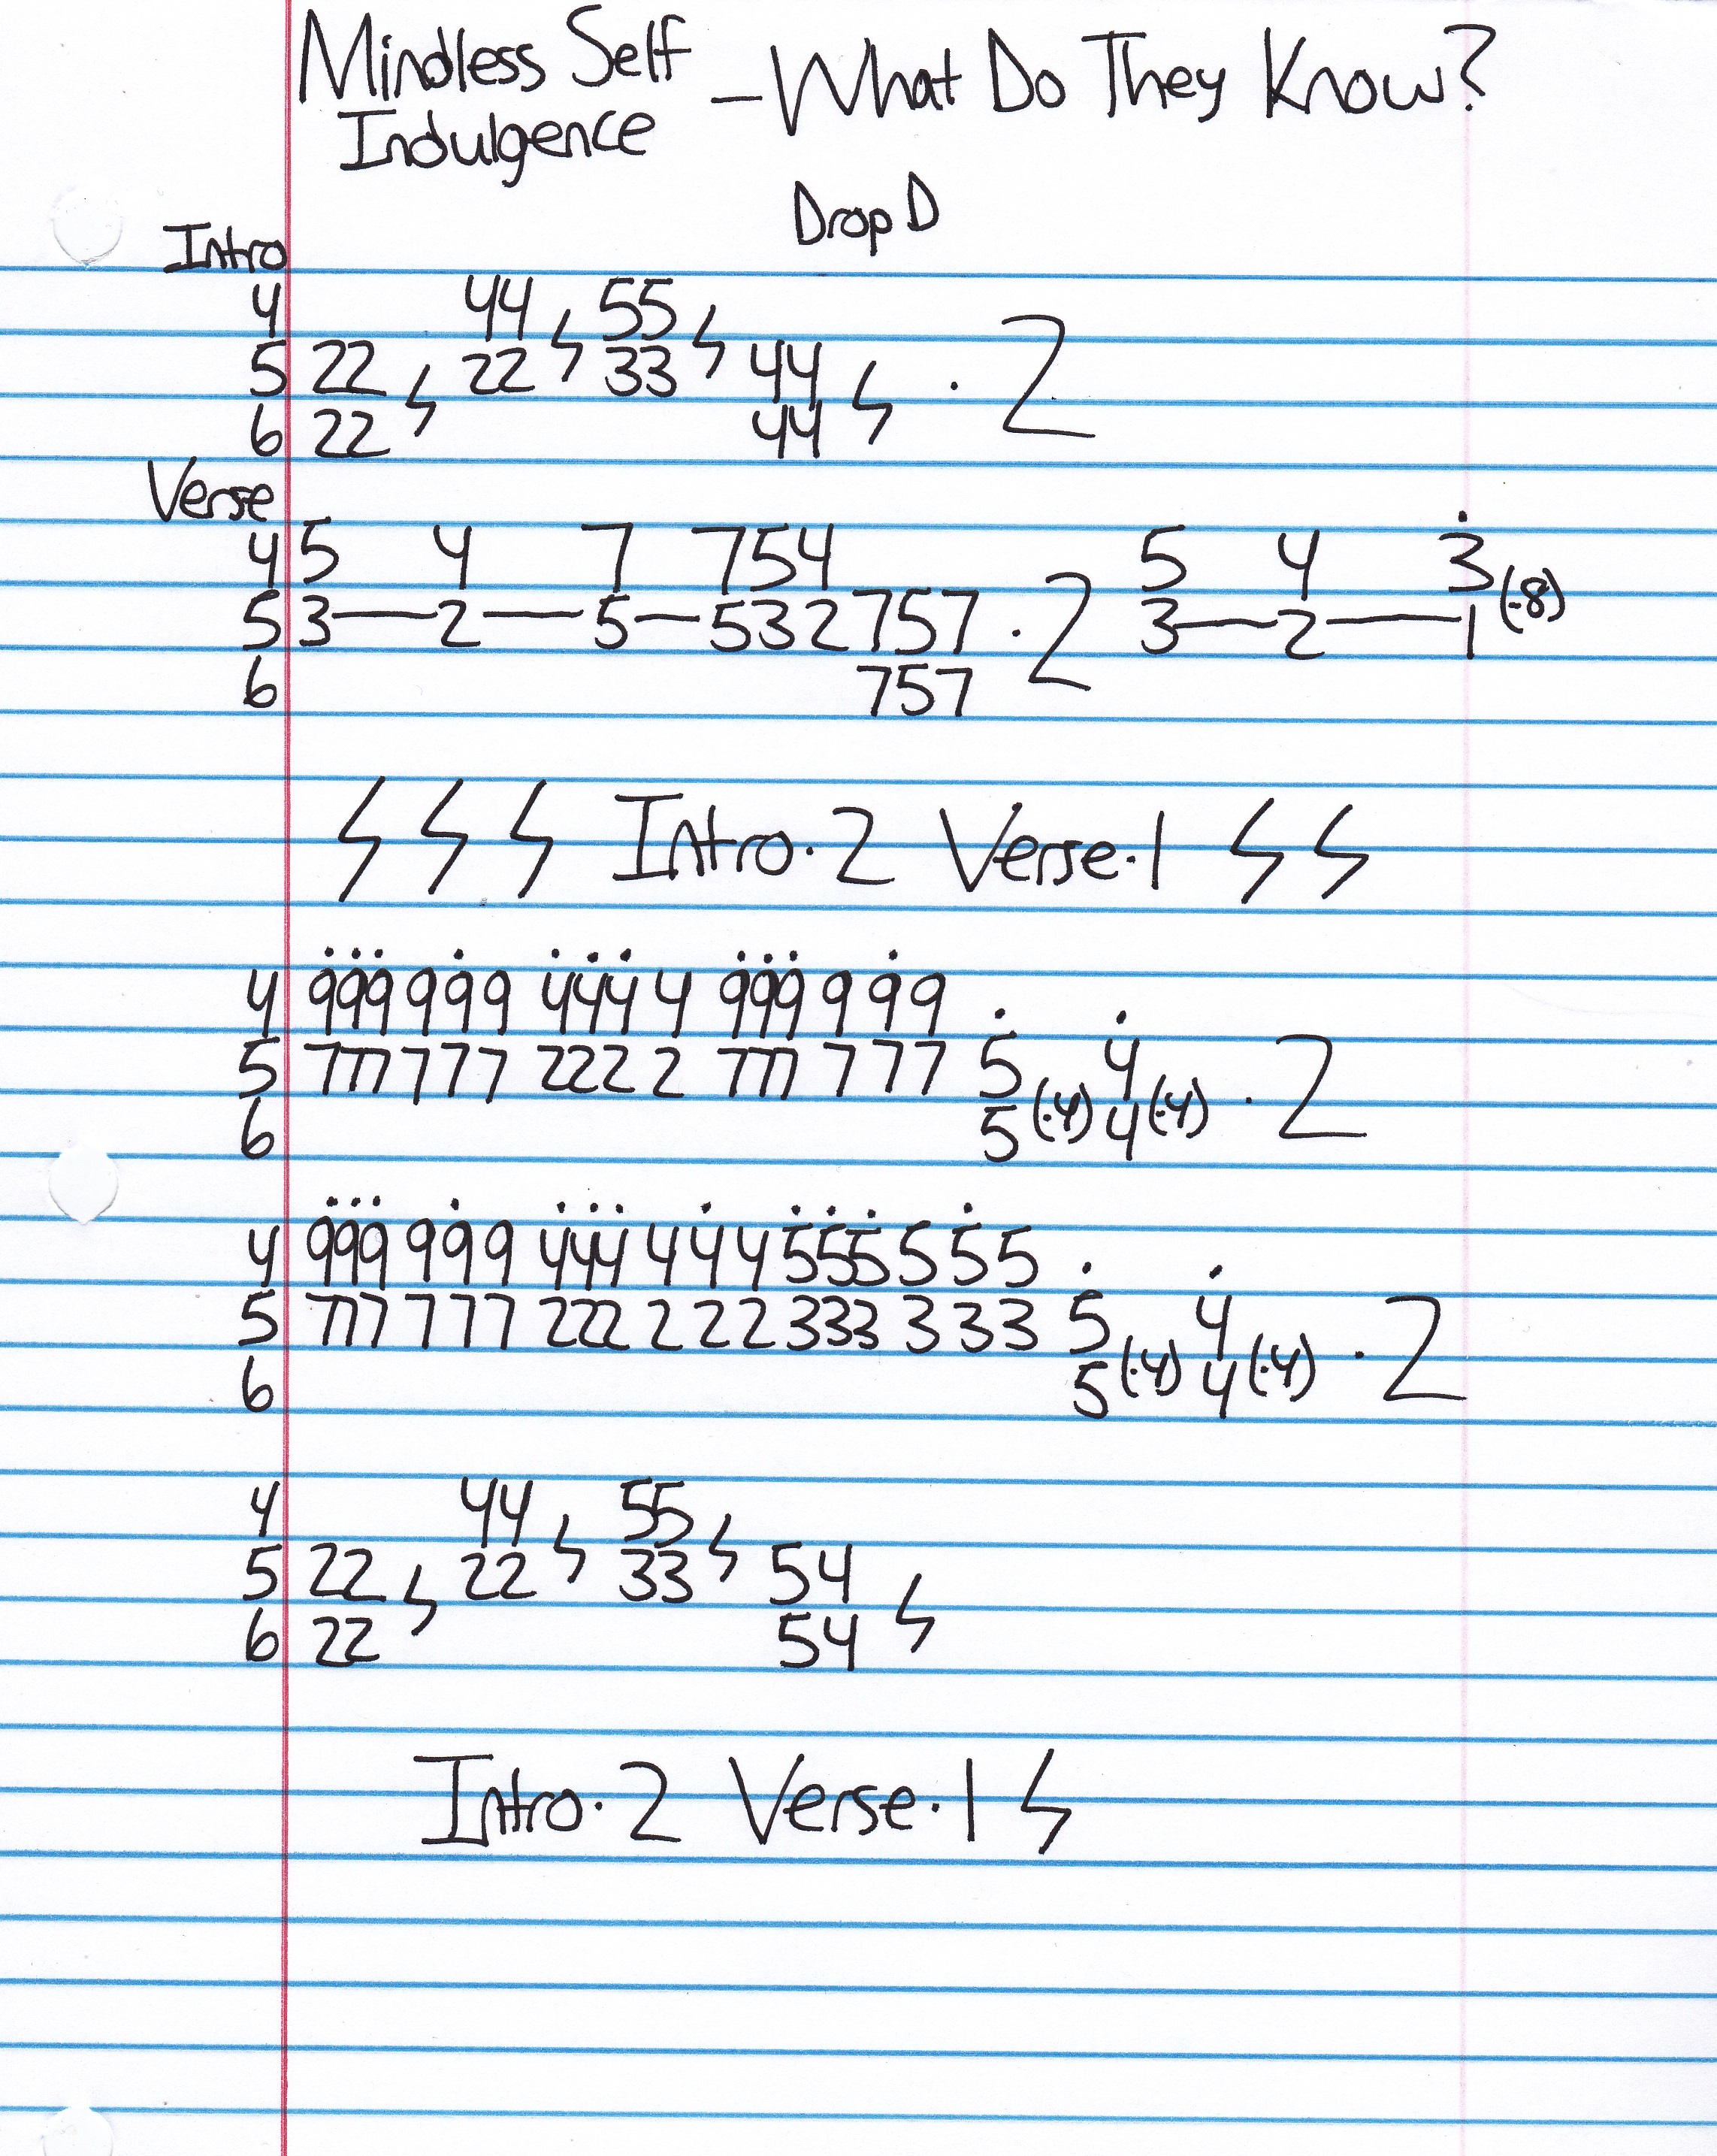 Mindless Self Indulgence – What Do They Know?
Drop D
Intro
4 44 ϟ 55 ϟ
5 22 ϟ 22 33 44 ϟ · 2
6 22 44
Verse
4 5 4 7 754 5 4 3̇
5 3—2—5—532757 · 2 3—2—1 (·8)
6 757
ϟ ϟ ϟ Intro·2 Verse·1 ϟ ϟ
4 9̇9̇9̇ 9 9̇ 9 4̇4̇4̇ 4 9̇9̇9̇ 9 9̇ 9
5 777 7 7 7 222 2 777 7 7 7 5̇ 4̇ · 2
6 5 (·4) 4 (·4)
4 9̇9̇9̇ 9 9̇ 9 4̇4̇4̇ 4 4̇ 4 5̇5̇5̇ 5 5̇ 5
5 777 7 7 7 222 2 2 2 333 3 3 3 5̇ 4̇ · 2
6 5 (·4) 4 (·4)
4 44 ϟ 55 ϟ
5 22 ϟ 22 33 54 ϟ
6 22 54
Intro·2 Verse·1 ϟ